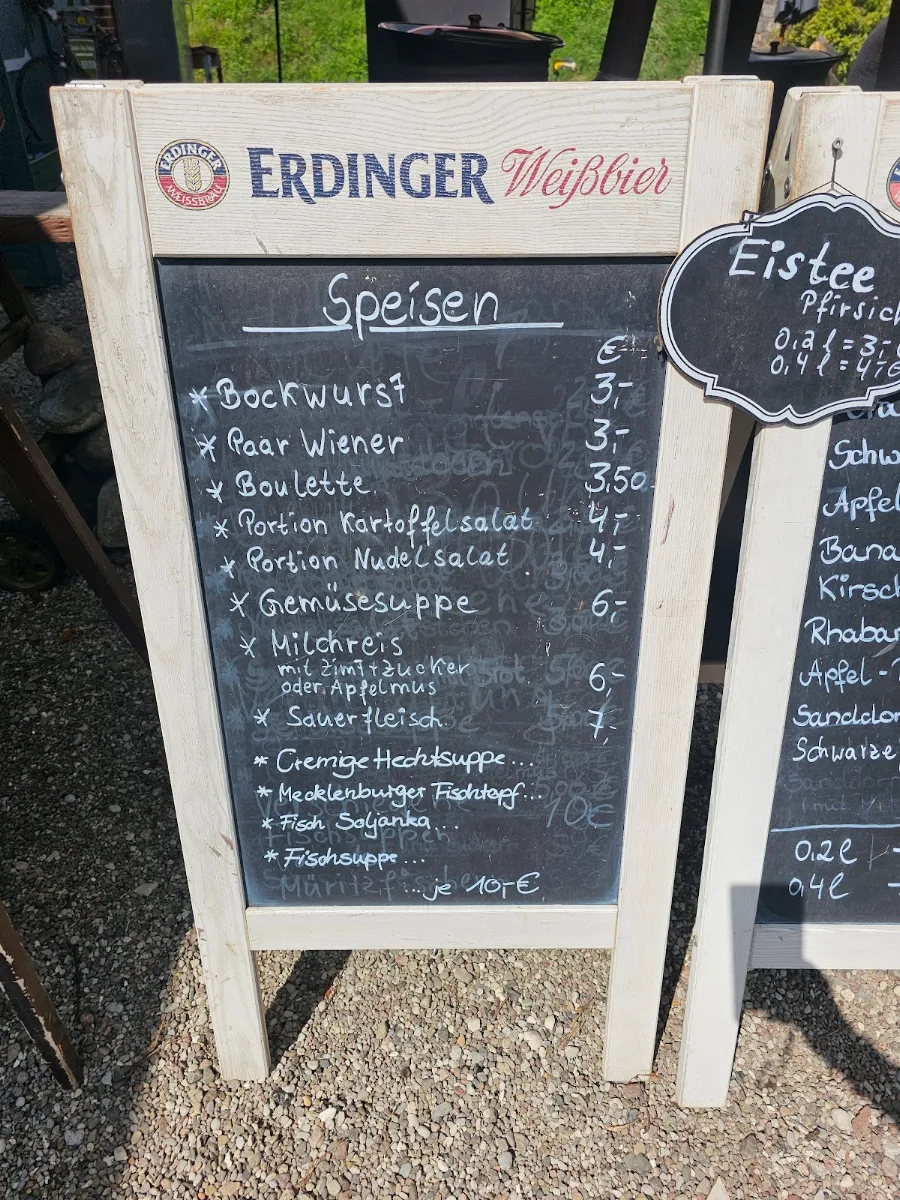 ERDINGER
WEISSBRÄU
ERDINGER Weißbier
Speisen
€
* Bockwurst 3,-
* Paar Wiener 3,-
* Boulette 3,50
* Portion Kartoffelsalat 4,-
* Portion Nudelsalat 4,-
* Gemüsesuppe 6,-
* Milchreis
mit Zimt+Zucker
oder Apfelmus 6,-
* Sauerfleisch 7,
* Cremige Hechtsuppe ...
* Mecklenburger Fischtopf...
* Fisch Soljanka ...
* Fischsuppe ...
...je 10,-€
10€
Müritzfische
Eistee
Pfirsich
0,2 l = 3,-
0,4 l = 4,
Schw
Apfel
Bana
Kirsch
Rhabar
Apfel -
Sanddor
Schwarze
0,2 l -
0,4 l -